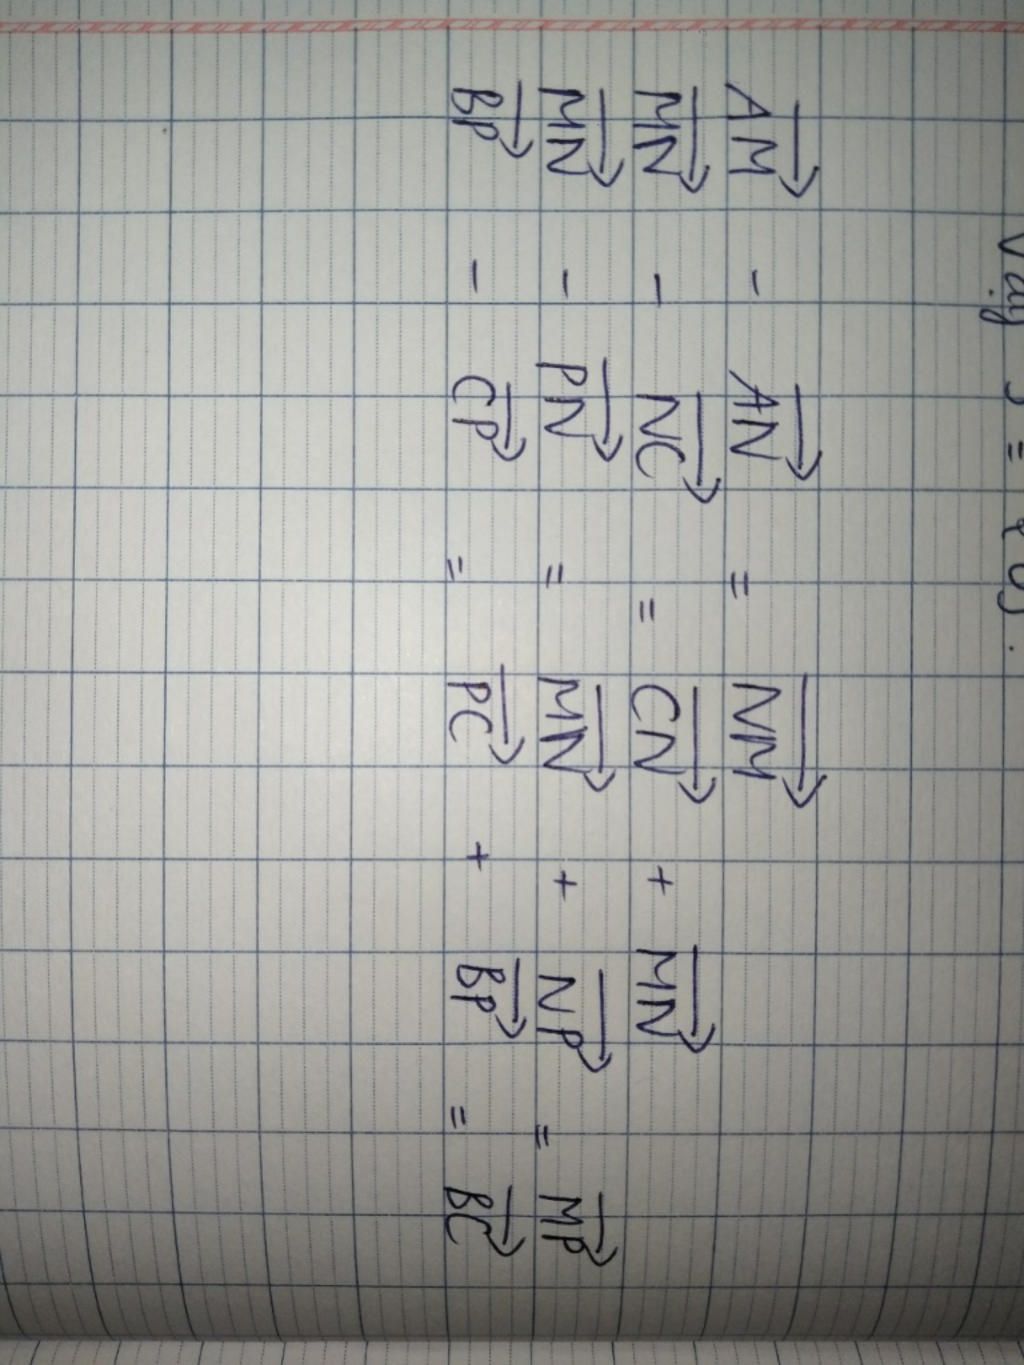 Vậy S = {0}.
AM⃗ - AN⃗ = NM⃗
MN⃗ - NC⃗ = CN⃗ + MN⃗
MN⃗ - PN⃗ = MN⃗ + NP⃗ = MP⃗
BP⃗ - CP⃗ = PC⃗ + BP⃗ = BC⃗